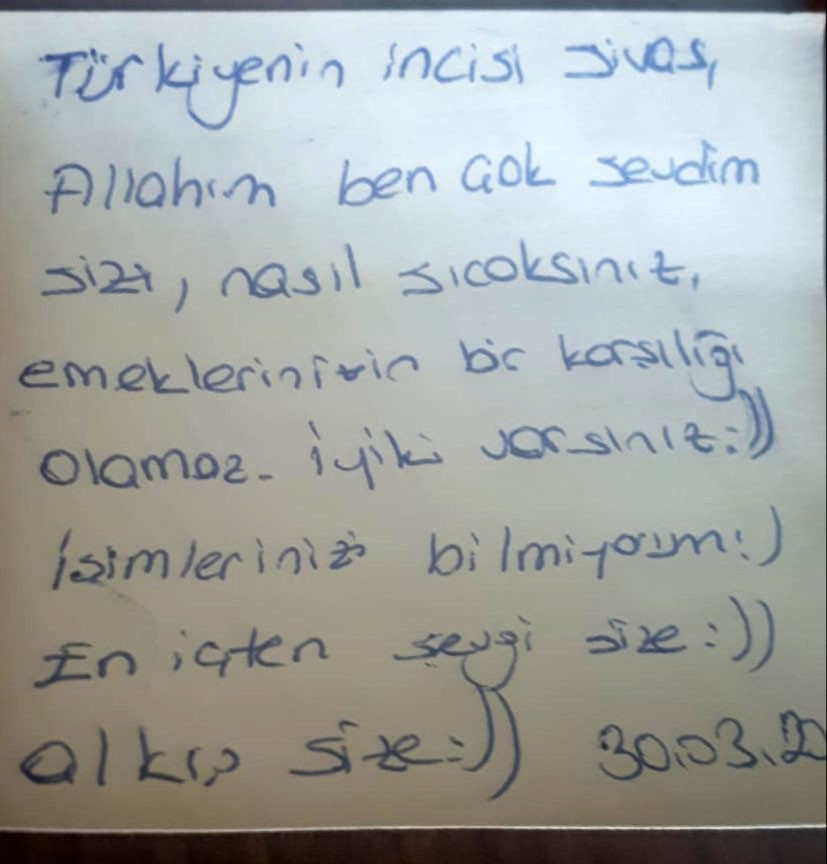 Türkiyenin incisi sivas,
Allahım ben çok sevdim
sizi, nasıl sıcaksınız,
emeklerinizin bir karşılığı
olamaz. İyiki varsınız:))
İsimlerinizi bilmiyorum:)
En içten sevgi size:))
alkış size:)) 30.03.20